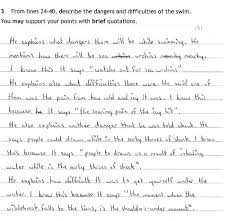 3 From lines 24-40, describe the dangers and difficulties of the swim.
You may support your points with brief quotations.
(5)
He explains what dangers there will be while swimming. He
mentions how there will be sea urchins nearby.
I know this It says "watch out for sea urchins"
He explains also what difficulties there were. He said one of
them was the pain from how cold and icy it was. I know this
because it says "the searing pain of the icy hit".
He also explains another danger that he was told about. He
says people could drown while in the early throes of shock. I know
this because It says "people to drown as a result of inhaling
water while in the early throes of shock".
He explains how difficult it was to get yourself under the
water. I know this because It says "the moment when the
to the lions, is the shoulders-under moment".